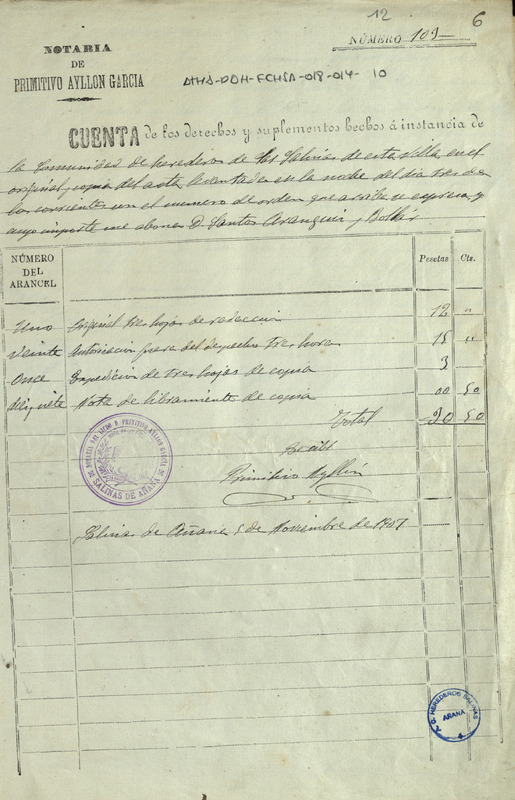 12
6
NOTARIA
DE
PRIMITIVO AYLLON GARCIA
NÚMERO 109
ATHA-DDH-FCHSA-018-014-10
CUENTA de los derechos y suplementos hechos á instancia de
la Comunidad de herederos de las Salinas de esta Villa, en el
original y copia del acta levantada en la noche del dia tres de
los corrientes con el numero de orden que arriba se expresa y
cuyo importe me abona D. Santos Aranguiz y
NÚMERO
DEL
ARANCEL
Pesetas Cts.
Uno original tres hojas de redaccion 12 "
Veinte Autorizacion fuera del despacho tres horas 15 "
Once Expedicion de tres hojas de copia 3
Nota de libramiento de copia 00 50
Total 30 50
Recibí
Primitivo Ayllón
NOTARIA DEL LICDO D. PRIMITIVO AYLLON GARCIA
SALINAS DE AÑANA
Salinas de Añana 5 de Noviembre de 1907
HEREDEROS SALINAS
AÑANA